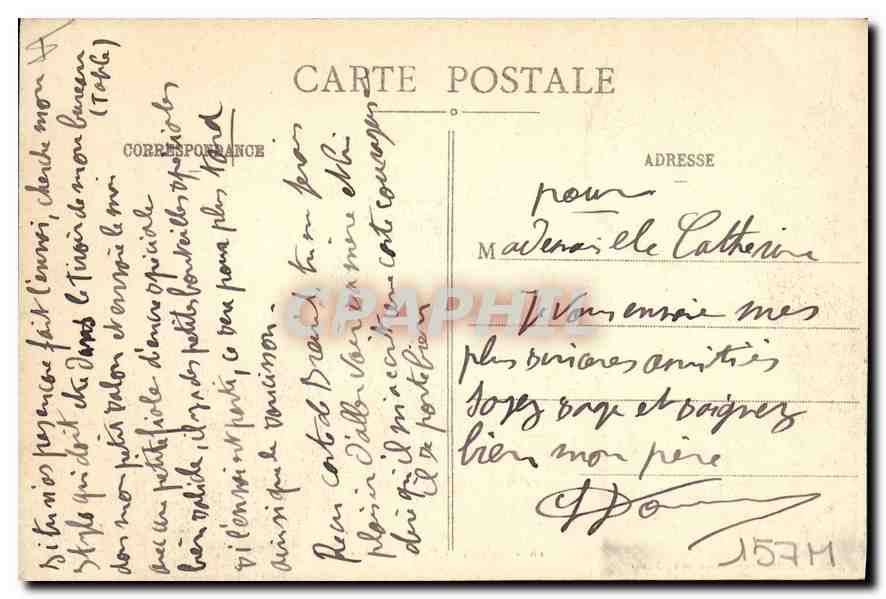 CARTE POSTALE
CORRESPONDANCE
ADRESSE
si tu n'as pas encore fait l'envoi, cherche mon
stylo qui doit être dans le tiroir de mon bureau
(Table)
dans mon petit salon et envoie le moi
avec un petit fiole d'encre spéciale
bien solide, il y a des petites bouteilles spéciales
si l'envoi est parti, ce sera pour plus tard
ainsi que le saucisson.
Reçu carte de tu me ferais
plaisir d'aller voir sa mère et lui
dire qu'il m'a écrit une carte
il se porte bien
pour
Mademoiselle Catherine
Je vous envoie mes
plus sincères amitiés
soyez sage et soignez
bien mon père
157M
CPAPHIL